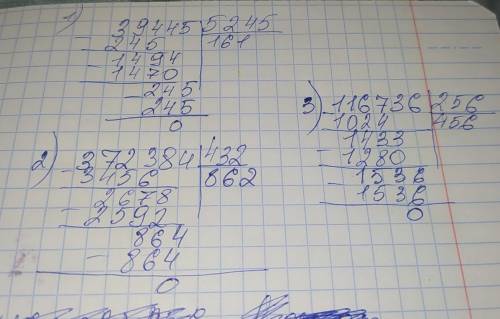 1)
39445 | 5245
- 245 | 161
- 1494
1470
- 245
245
0
2)
- 372384 | 432
3456 | 862
- 2678
2592
864
- 864
0
3)
- 116736 | 256
1024 | 456
- 1433
1280
- 1536
1536
0